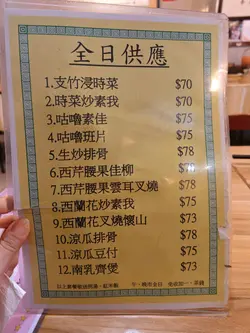 全日供應
1.支竹浸時菜 $70
2.時菜炒素我 $70
3.咕嚕素佳 $75
4.咕嚕班片 $75
5.生炒排骨 $78
6.西芹腰果佳柳 $78
7.西芹腰果雲耳叉燒 $78
8.西蘭花炒素我 $75
9.西蘭花叉燒懷山 $73
10.涼瓜排骨 $78
11.涼瓜豆付 $75
12.南乳齊煲 $73